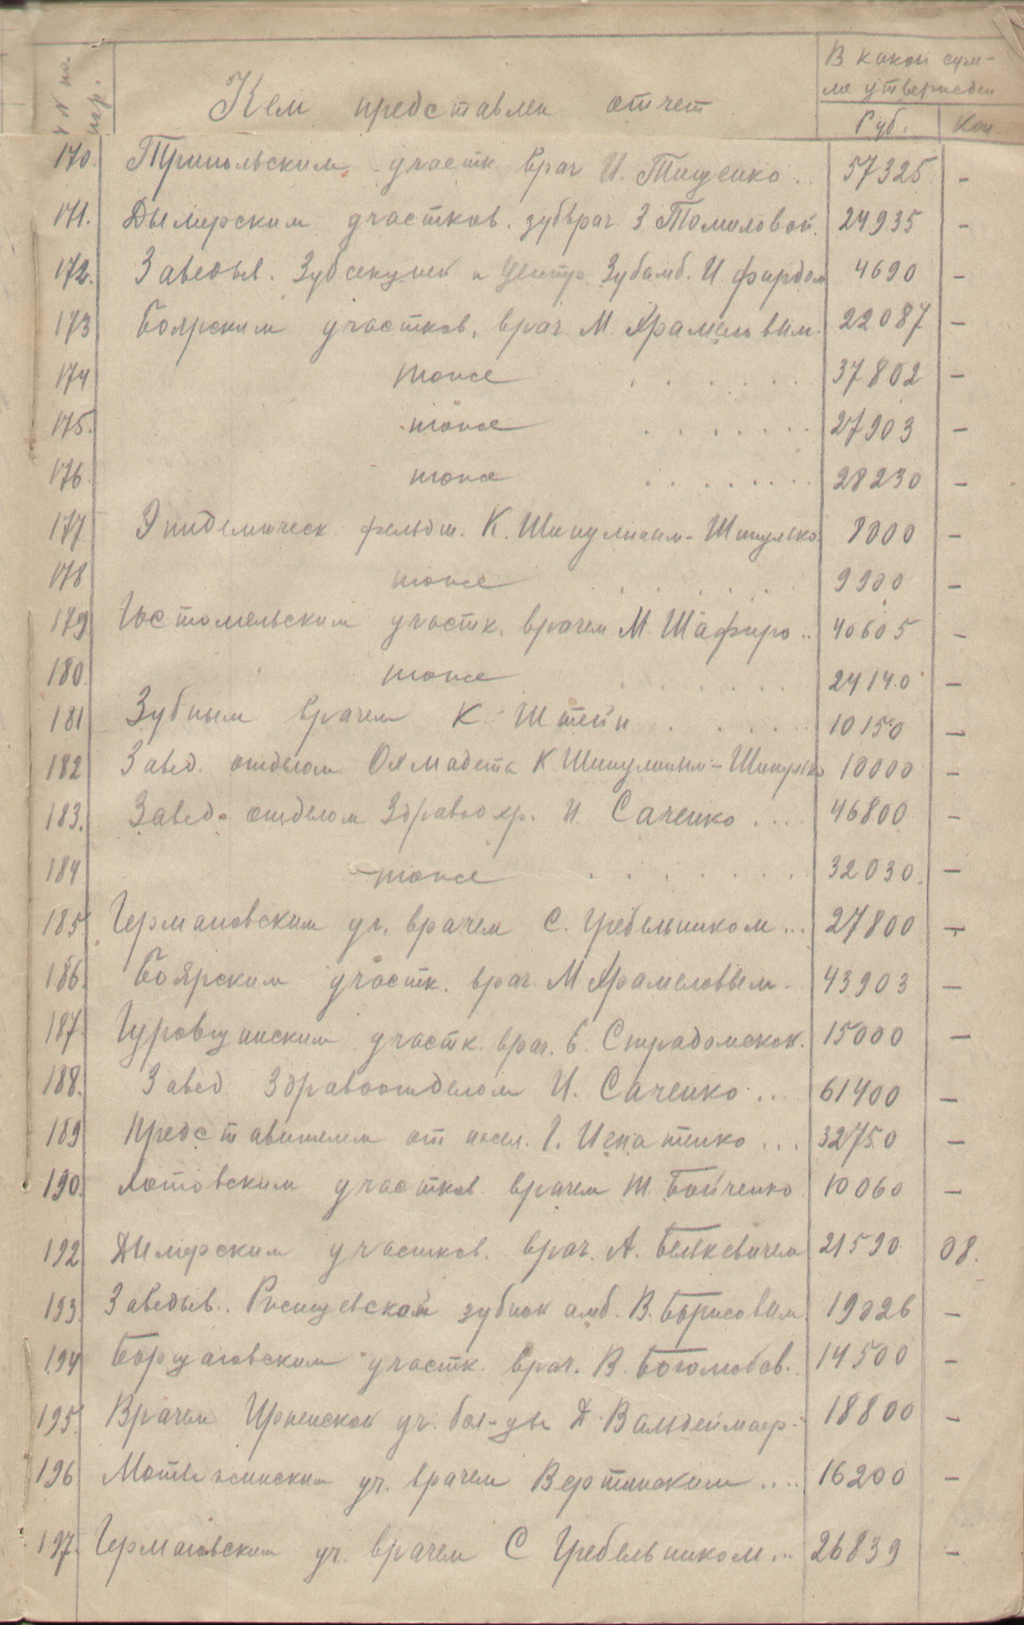 № по пор. Кем представлен отчет В какой сум-
ме утвержден
Руб. Коп
170. Трипольским участк врач И. Тищенко .. 57325 -
171. Дымерским участков. зубврач. З Томиловой. 24935 -
172. Заведыв. Зубсекцией и Центр. Зубамб. И 4690 -
173 Боярским участков. врач. М. Храмеловым. 22087 -
174 тоже . . . . . . 37802 -
175. тоже . . . . . . . 27903 -
176 тоже . . . . . . . 28230 -
177 Эпидемическ. фельдш. К. Шипулиным-Шипулько 8000 -
178 тоже . . . . . . 9900 -
179 Гостомельским участк. врачем М. Шафиро .. 40605 -
180. тоже . . . . . . 24140 -
181 Зубным врачем К. Штейн . . . . 10150 -
182 Завед. отделом Охмадета К Шипулиным-Шипулько 10000 -
183. Завед. отделом Здравоохр. И. Саченко .... 46800 -
184 тоже . . . . . . . 32030. -
185 Германовским уч. врачем С. Гребельником ... 27800 -
186 Боярским участк. врач. М Храмеловым. 43903 -
187 Гуровщинским участк. врач. Страдомской. 15000 -
188. Завед Здравоотделом И. Саченко ... 61400 -
189 Представителем от насел. Г. Игнатенко ... 32750 -
190. Хотовским участков врачем Т. Бойченко 10060 -
192 Дымерским участков. врач. А. Белькевичем 21590 08.
193. Заведыв. Ржищевской зубной амб. В. Борисовым. 19026 -
194 Борщаговским участк. врач. В. Боголюбов. 14500 -
195. Врачем Ирпенской уч. бол-цы Д. Вальдеймаер. 18800 -
196 Мотыжинским уч. врачем Вертинским .... 16200 -
197. Германовским уч. врачем С Гребельником ... 26839 -